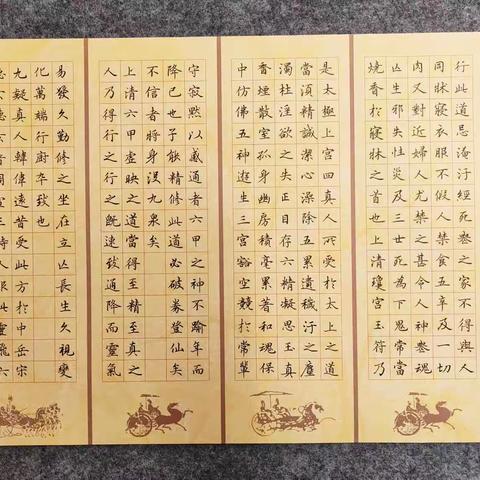 行此道忌淹汙經死喪之家不得與人
同牀寢衣服不假人禁食五辛及一切
肉又對近婦人尤禁之甚令人神喪魂
亡生邪失性災及三世死為下鬼常當
燒香於寢牀之首也上清瓊宮玉符乃
是太極上宮四真人所受於太上之道
當須精誠潔心澡除五累遺穢汙之塵
濁杜淫欲之失正目存六精凝思玉真
香煙散室孤身幽房積毫累著和魂保
中仿佛五神遊生三宮豁空競於常輩
守寂默以感通者六甲之神不踰年而
降已也子能精修此道必破券登仙矣
不信者將身沒九泉矣
上清六甲虛映之道當得至精至真之
人乃得行之行之既速致通降而靈氣
易發久勤修之坐在立亡長生久視變
化萬端行廚卒致也
九疑真人韓偉遠昔受此方於中岳宗
時人服此靈飛六